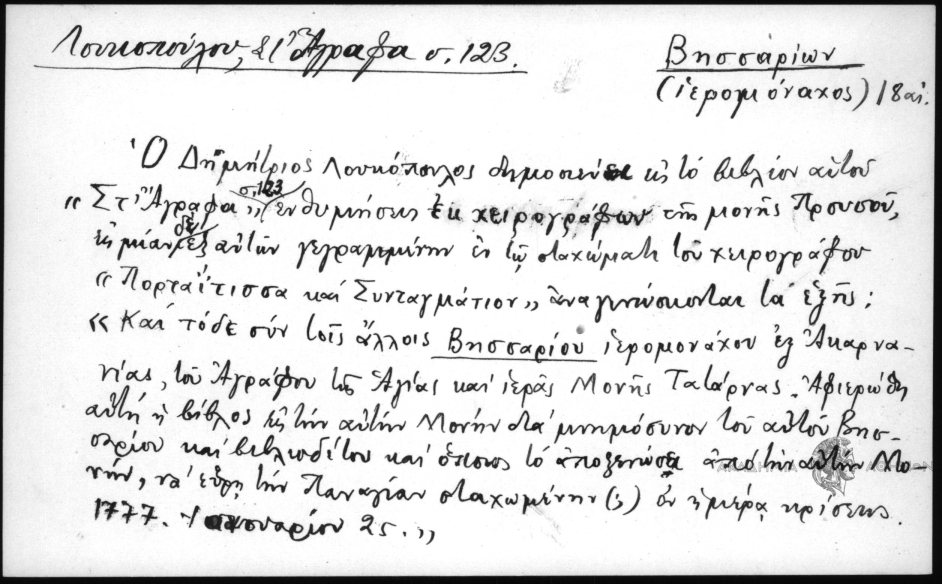 Λουκοπούλου, Στ' Ἄγραφα σ. 123.
Βησσαρίων
(ἱερομόναχος) 18 αἰ.
Ὁ Δημήτριος Λουκόπουλος δημοσιεύει εἰς τὸ βιβλίον αὐτοῦ
σ. 123
« Στ' Ἄγραφα » ἐνθυμήσεις ἐκ χειρογράφων τῆς μονῆς Προυσοῦ,
εἰς μίαν δὲ ἐξ αὐτῶν γεγραμμένην ἐν τῷ σταχώματι τοῦ χειρογράφου
« Πορταΐτισσα καὶ Συνταγμάτιον » ἀναγινώσκονται τὰ ἑξῆς:
« Καὶ τόδε σύν τοῖς ἄλλοις Βησσαρίου ἱερομονάχου ἐξ Ἀκαρνα-
νίας, τοῦ Ἀγράφου τῆς Ἁγίας καὶ ἱερᾶς Μονῆς Τατάρνας. Ἀφιερώθη
αὐτὴ ἡ βίβλος εἰς τὴν αὐτὴν Μονὴν διὰ μνημόσυνον τοῦ αὐτοῦ Βησ-
σαρίου καὶ βιβλιοδέτου καὶ ὅποιος τὸ ἀποξενώσει ἀπὸ τὴν αὐτὴν Μο-
νήν, νὰ εὕρῃ τὴν Παναγίαν σταχωμένην (;) ἐν ἡμέρᾳ κρίσεως.
1777. Ἰανουαρίου 25. »